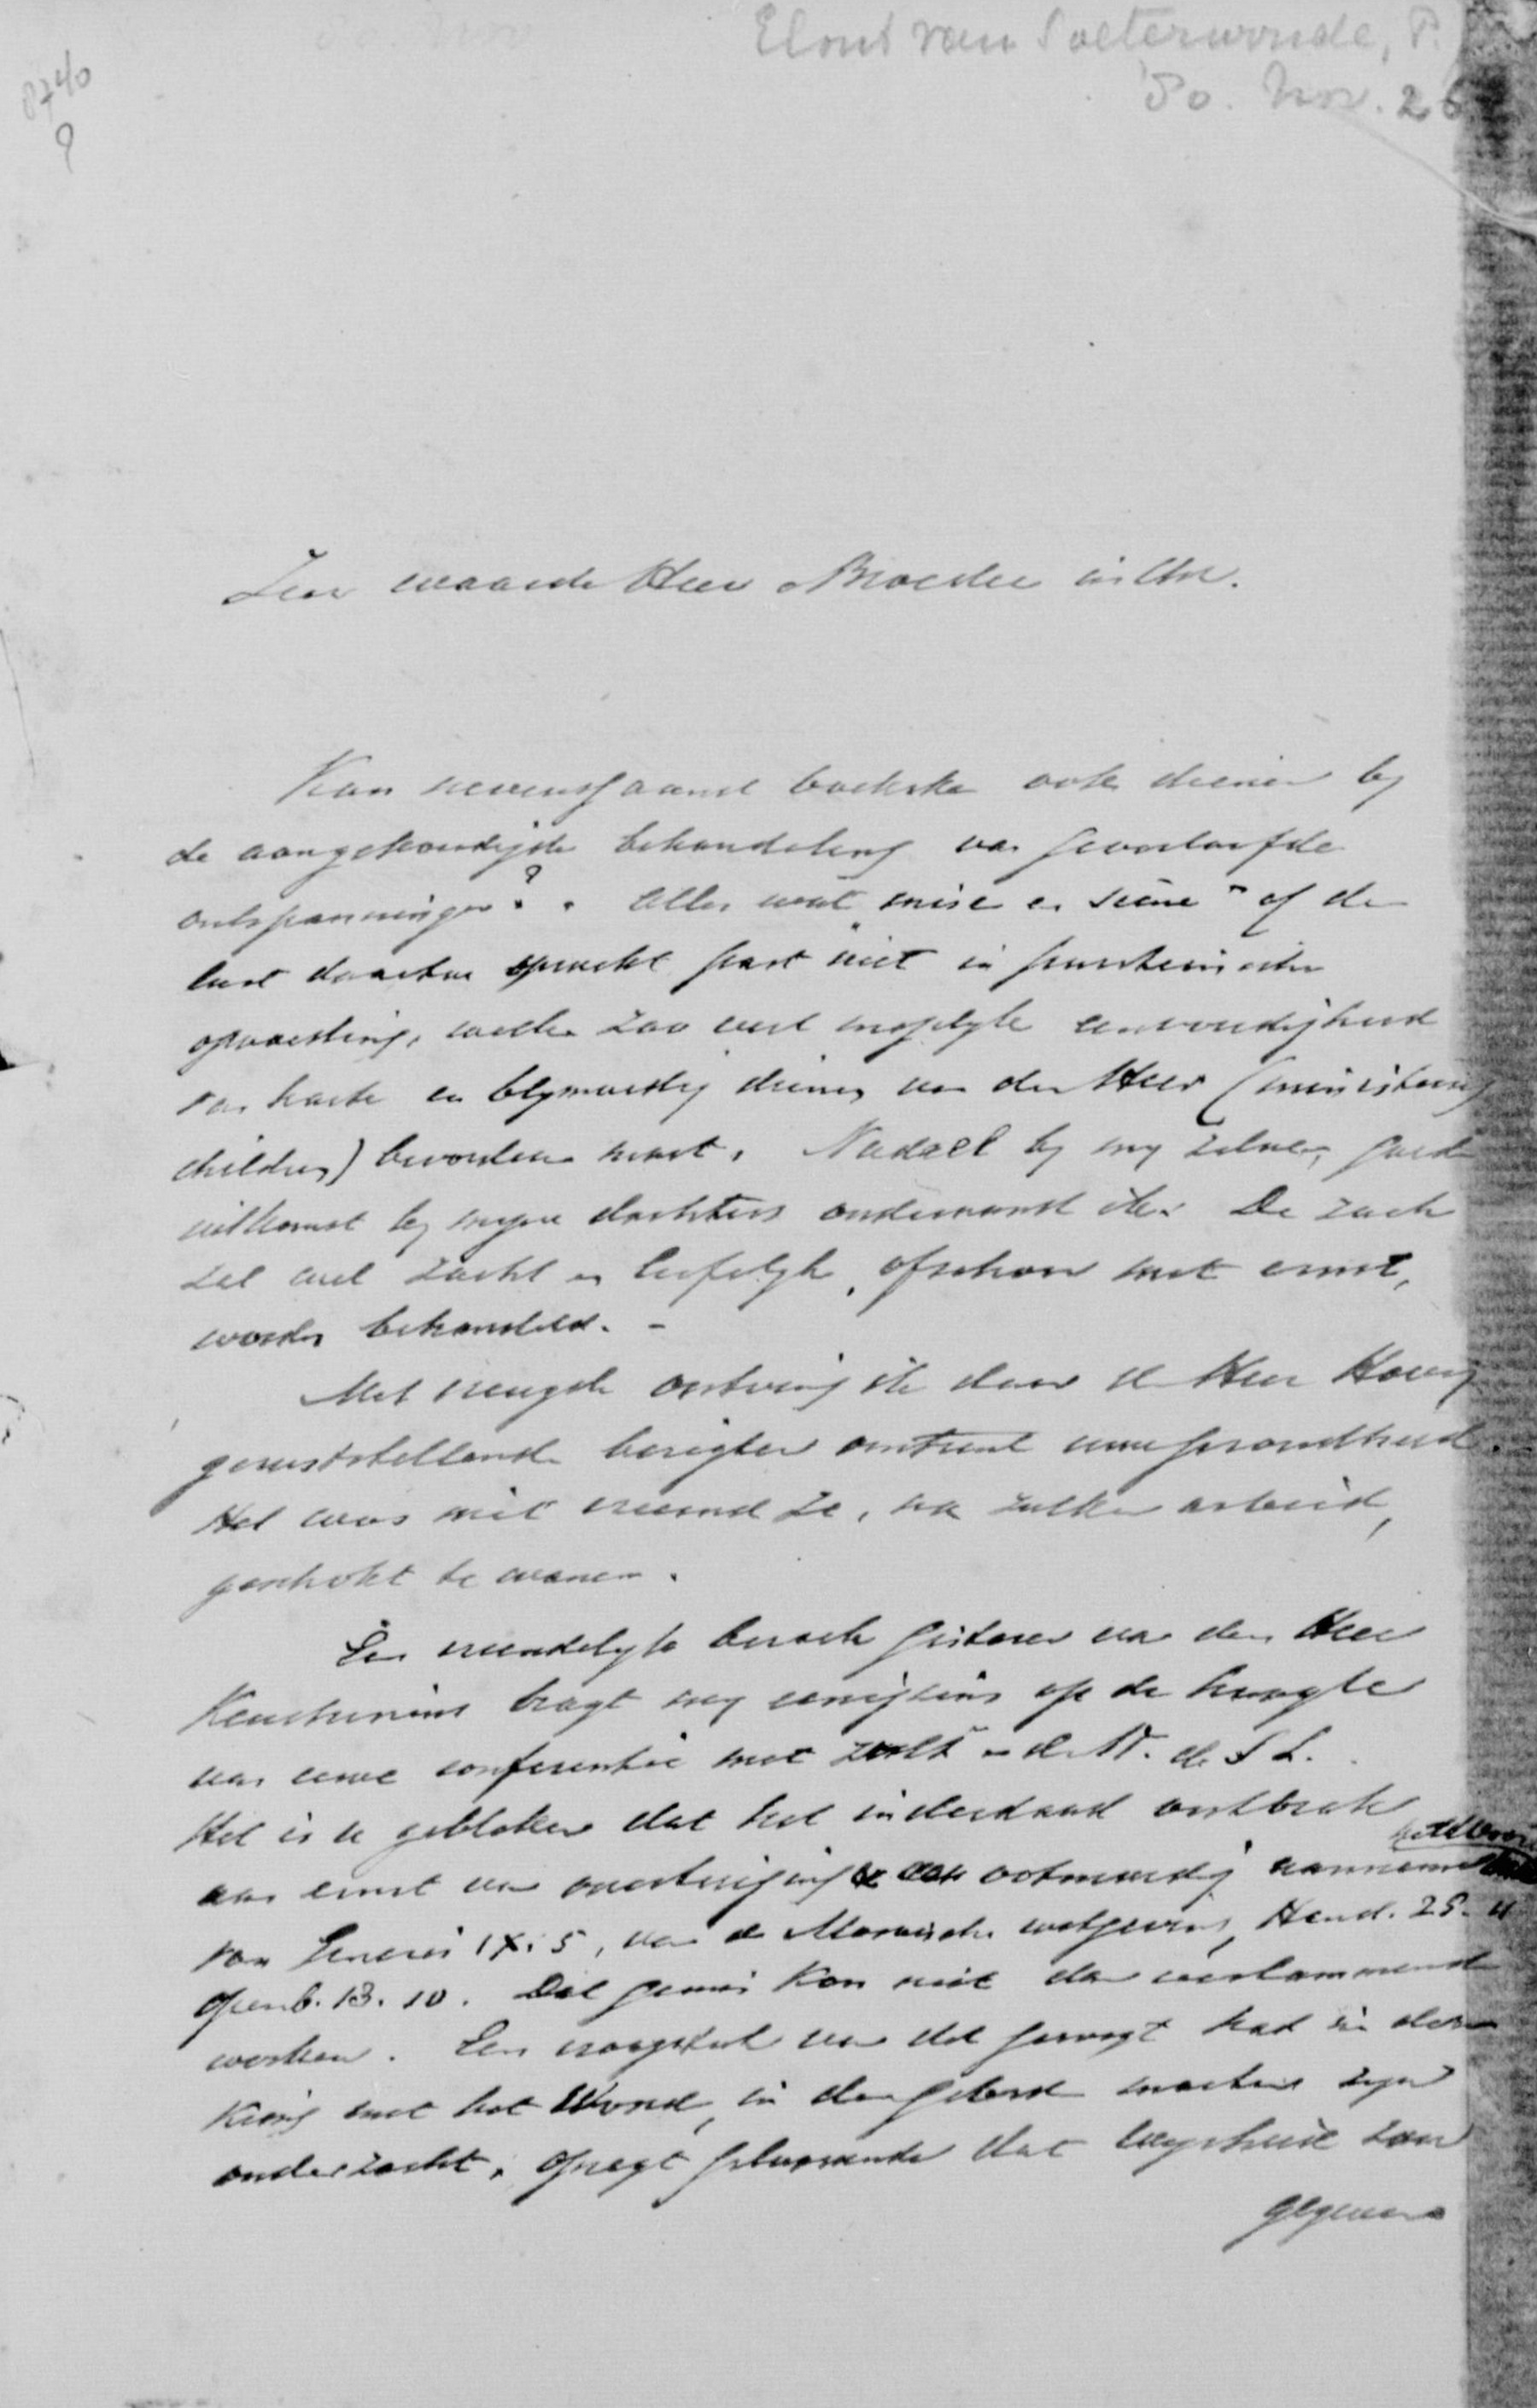 Elout van Soeterwoude, P.
'80. Nov. 26
8740
Zeer waarde Heer & Broeder in Chr.
Kan nevensgaand boekske ook dienen bij
de aangekondigde behandeling van geoorloofde
ontspanningen? Alles wat "mise en scène" of de
lust daartoe opwekt past niet in
opvoeding, welke zoo veel mogelyk eenvoudigheid
van harte en blymoedig dienen van den Heer (ministering
children) bevorderen moet. Nadeel by my zelven, goede
uitkomst by myne dochters ondervond ik. De zaak
zal wel zacht en liefelyk, ofschoon met ernst,
worden behandeld. -
Met vreugde ontving ik door de Heer Hovy
geruststellende berigten omtrent uwe gezondheid.
Het was niet vreemd, na zulken arbeid,
geschokt te wezen.
Een vriendelyk bezoek gisteren van den Heer
Keuchenius bragt my eenigzins op de hoogte
van uwe conferentie met en d. S. L.
Het is u gebleken dat het inderdaad ontbrak
aan ernst van overtuiging ootmoedig aannemen
van Genesis IX. 5, van de Mozaische wetgeving, Hand. 25. 11
Openb. 13. 10. Dit gemis kon niet dan verlammend
werken. Een vraagstuk van dat gewigt had in
king met het Woord, in den gebede moeten zyn
onderzocht, opregt geloovende dat wysheid zou
gegeven